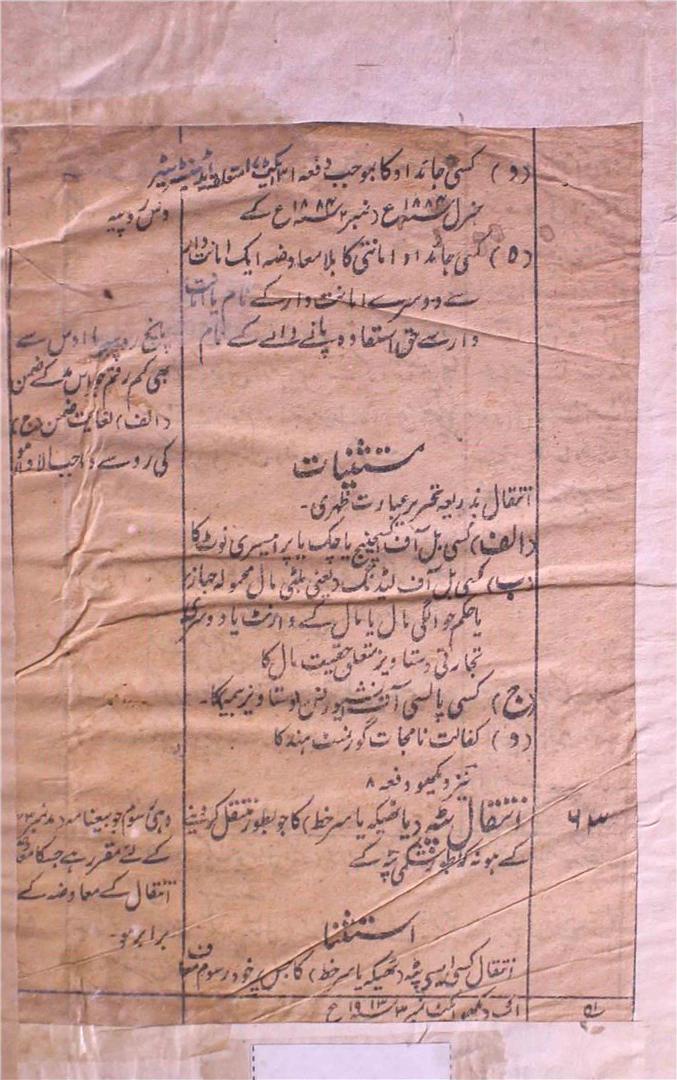 (د) کسی جائداد کا بموجب دفعہ ۳۱ ایکٹ متعلقہ
جنرل ۱۸۷۴ع (نمبر ۲ ۱۸۷۴ع کے
دس روپیہ
(ہ) کسی جائداد امانتی کا بلا معاوضہ ایک امانت دار
سے دوسرے امانت دار کے نام یا امانت
دار سے حق استفادہ پانے والے کے نام
پانچ روپیہ یا اوس سے
بھی کم رقم جو اس مد کے ضمن
(الف) لغایت ضمن (ج)
کی رو سے واجب الادا ہو
مستثنیات
انتقال بذریعہ تحریر عبارت ظہری۔
(الف) کسی بل آف اکسچینج یا چک یا پرامیسری نوٹ کا
(ب) کسی بل آف لیڈنگ (یعنی بلٹی مال محمولہ جہاز)
یا حکم حوالگی مال یا مال کے وارنٹ یا دوسری
تجارتی دستاویز متعلق حقیت مال کا
(ج) کسی پالسی آف انشیورنس (دستاویز بیمہ) کا۔
(د) کفالت نامجات گورنمنٹ ہند کا
نیز دیکھو دفعہ ۸
۶۳
انتقال پٹہ (یا ٹھیکہ یا سرخط) کا جو بطور منتقل کر دینے
کے ہو نہ بطور شکمی پٹہ کے
وہی رسوم جو بیعنامہ (مد نمبر ۲۳)
کے لئے مقرر ہے جسکا معاوضہ
انتقال کے معاوضہ کے
برابر ہو۔
استثنا
انتقال کسی ایسی پٹہ (ٹھیکہ یا سرخط) کا جس پر خود رسوم معاف
دیکھو اکٹ نمبر ۳ ۱۹۱۳ع